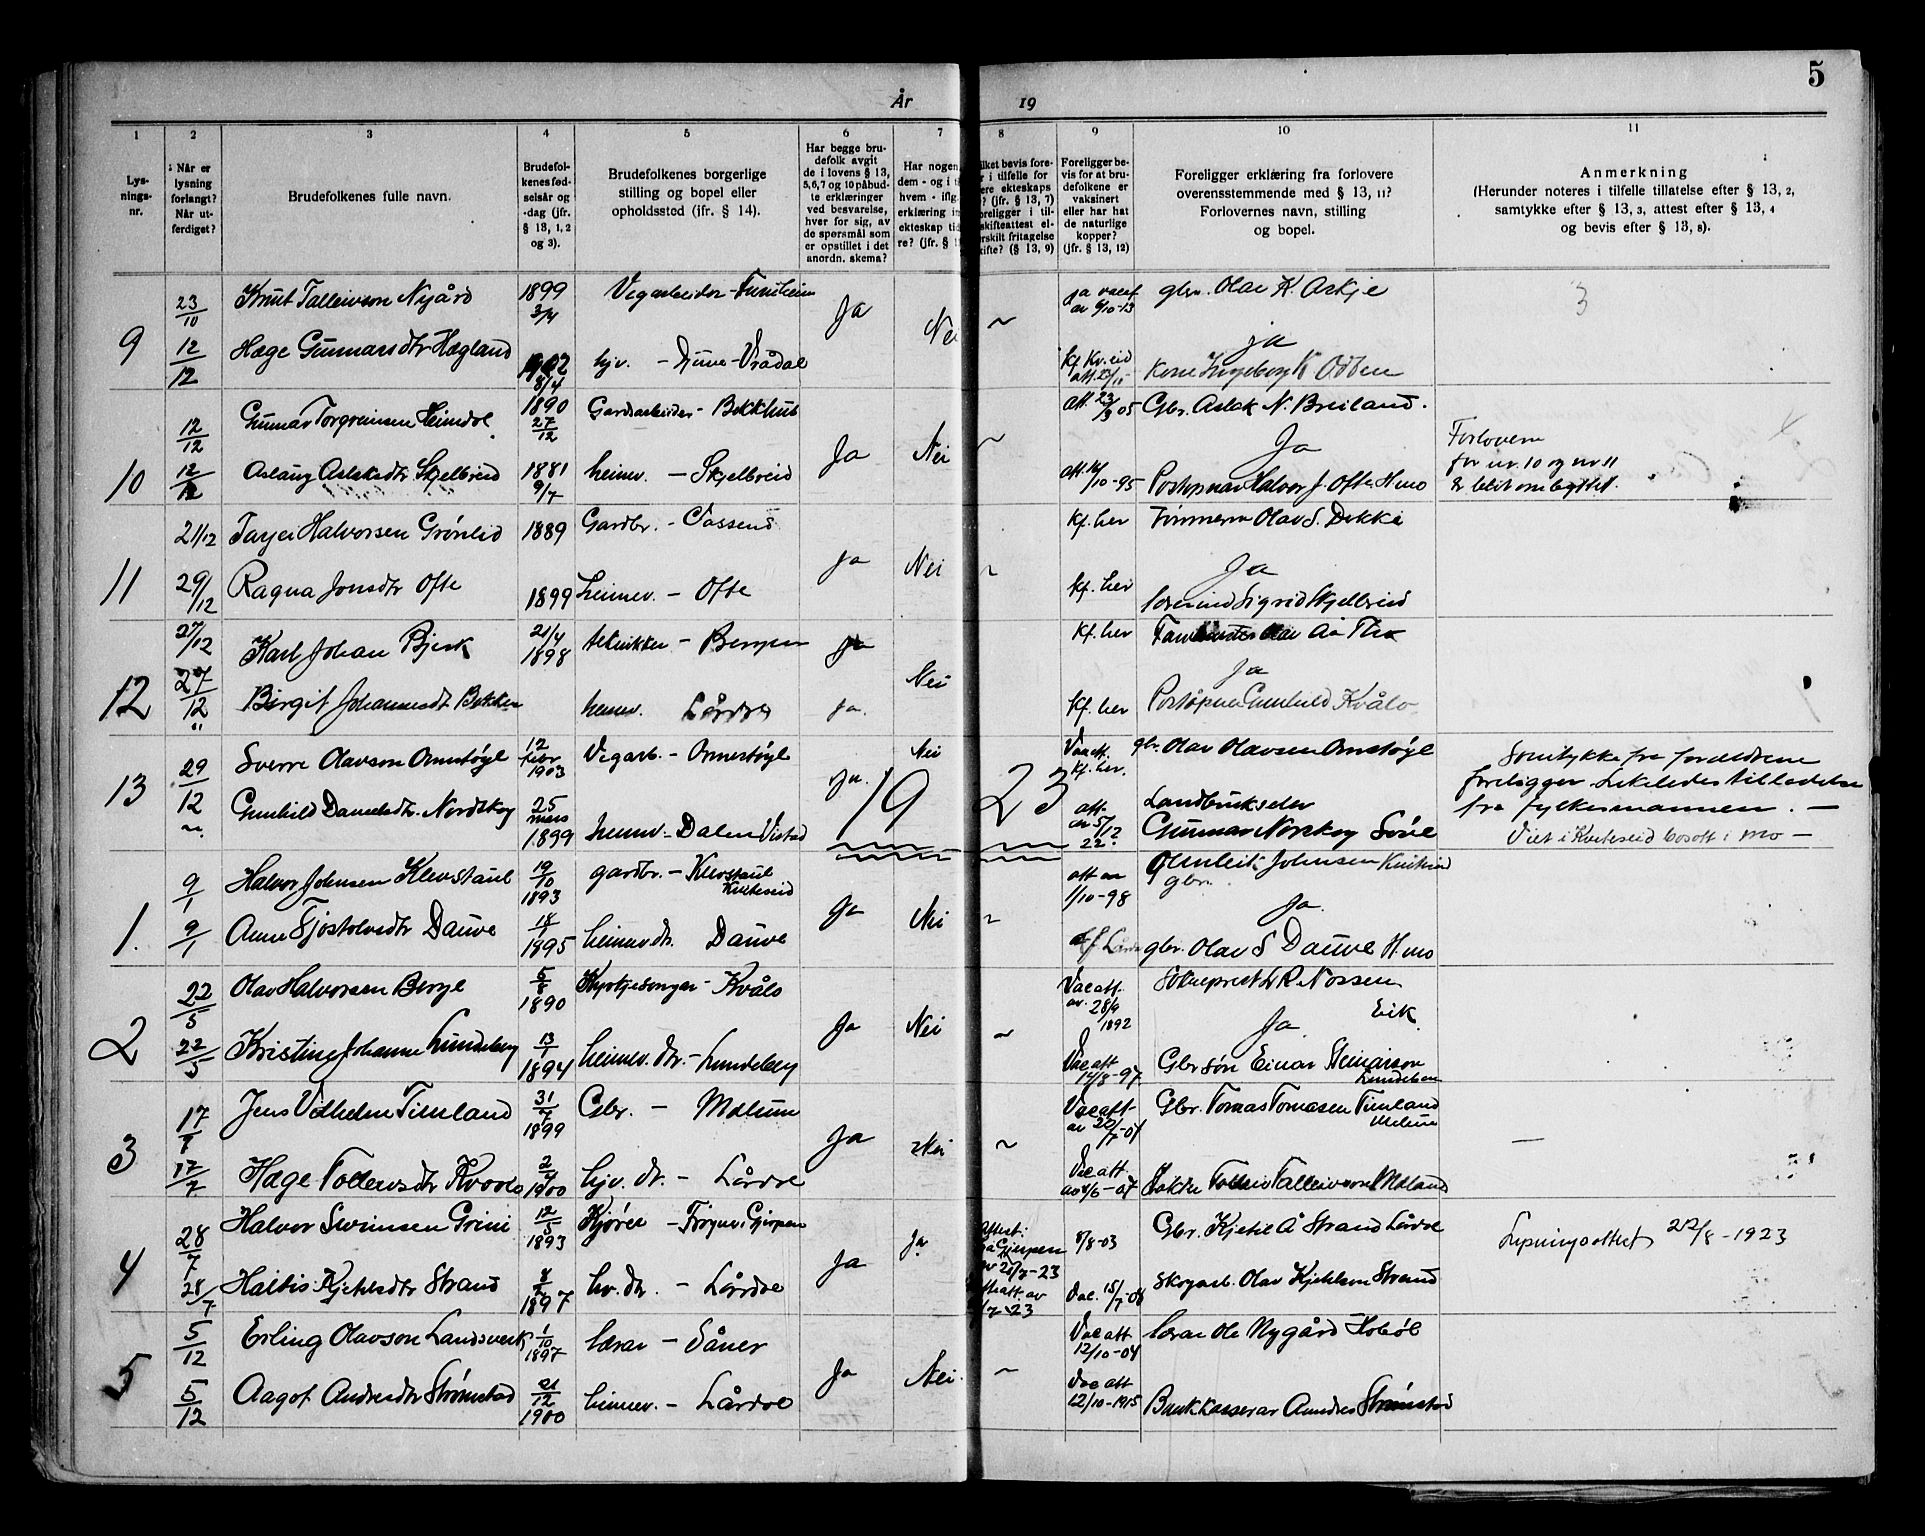 5
År 19
1 2 3 4 5 6 7 8 9 10 11
Lys-
nings-
nr.
Når er
lysning
forlangt?
Når ut-
ferdiget?
Brudefolkenes fulle navn.
Brudefol-
kenes fød-
selsår og
-dag (jfr.
§ 13, 1, 2
og 3).
Brudefolkenes borgerlige
stilling og bopel eller
opholdssted (ifr. § 14).
Har begge bru-
defolk avgit
de i lovens § 13,
5, 6, 7 og 10 påbud-
te erklæringer
ved besvarelse,
hver for sig, av
de spørsmål som
er opstillet i det
anordn. skema?
Har nogen
dem - og i t
hvem - iflg.
erklæring in
ekteskap tid
re? (jfr. § 1
lket bevis fore-
r i tilfelle for
ere ekteskaps
? (jfr. § 13, 7)
oreligger i til-
skifteattest el-
rskilt fritagelse
kifte? (§ 13, 9)
Foreligger be-
vis for at bru-
defolkene er
vaksinert
eller har hat
de naturlige
kopper?
(jfr. § 13, 12)
Foreligger erklæring fra forlovere
overensstemmende med § 13, 11?
Forlovernes navn, stilling
og bopel.
Anmerkning
(Herunder noteres i tilfelle tillatelse efter § 13, 2,
samtykke efter § 13, 3, attest efter § 13, 4
og bevis efter § 13, 8).
23/10 Knut Talleivson Nygård 1899 3/4 Vegarbeider - Ja ja vacatt av 6/10-13 gbr. Olav K. Askje 3
9 Nei ~ ja
12/12 Hæge Gunnarsdtr Hægland 8/4 hjv. - Vrådal Kf. Kv.eid Kone Ingeborg K Odden
12/12 Gunnar Torgrimsen Heimdal 1890 27/12 Gardsarbeider - Bekkhus att. 23/9 05 Gbr. Aslak N. Breiland.
10 Ja Nei ~ Ja Forlovern
for nr. 10 og nr 11
er blit ombyttet.
12/12 Aslaug Aslaksdtr Skjelbreid 1881 9/7 heimev. - Skjelbreid att. 10-95 Postopnar Halvor J. Ofte H.mo
21/12 Tarjei Halvorsen Grønlid 1889 Gardbr. - Vassend Kf. her Olav S. Dekke
11 Ja Nei ~ Ja
29/12 Ragna Jonsdtr Ofte 1899 heimev. - Ofte kf. her Sigrid Skjelbreid
27/12 Karl Johan Bjerk 21/4 1898 - Bergen Ja Kf. her Olav Aa Tho
12 Nei Ja
27/12 " Birgit Johannesdt Bekken heimev. Lårdal ja. Kf. her Postopnar Gunhild Kvålo
29/12 Sverre Olavson Ormstøyl 12 febr 1903 Vegarb. - Ormestøyl Ja. Nei Vac att. Kf. her. gbr. Olav Olavsen Ormstøyl Samtykke fra foreldrene
foreligger likeledes tilladelse
fra fylkesmannen. -
13 1923
Gunhild Danielsdtr. Nordskog 25 mars 1899 heimev. - Dalen Vistad att. av 5/12 22. Landbrukselev
Gunnar Norskog Viet i Kviteseid bosatt i Mo -
9/1 Halvor Johnsen Klevstaul 19/10 1893 gardbr. - Klevstaul Kviteseid att av 1/10-98 Olmleik Johnsen
gbr.
1. Ja Nei ~ Ja.
9/1 Anne Tjostolvsdtr Dauve 18/1 1895 heimev. dtr. Dauve gbr. Olav S Dauve H.mo
22/5 Olav Halvorsen Berge 5/8 1890 Kyrkjesongar - Kvålo Vac att. av. 28/9 1892 Sokneprest R. Nossen
Eik
2 Ja Nei ~ Ja
22/5 Kristine Johanne Lundeberg 13/1 1894 heimev. dtr. - Lundeberg Vac att 14/8-97 Gbr søn Einar Steinarsson
17/7 Jens Vilhelm Timland 31/7 1899 Gbr. - Mælum Vac att- av 20/7-07 Gbr. Tomas Tomasen Timland
Melum
3 Ja Nei ~ -
17/7 Hæge Tolleivsdtr Kvaale 2/4 1900 hjv. dtr. - Lårdal Vac att. av 4/6-07 Talleiv Talleivson Mæland
28/7 Halvor Sveinsen Grini 12/5 1893 Kjører - Frogner, Gjerpen Ja. Attest: fra Gjerpen av 21/7-23 8/8-03 Gbr. Kjetil Å Strand Lårdal Lysningsattest 22/8-1923
4 Ja
28/7 Haldis Kjetilsdtr Strand 1897 hv. dtr. - Lårdal av /7-23 Vac. 15/7-08 Skogarb. Olav Kjetilson Strand
5/12 Erling Olavson Landsverk 1/10 1897 lærar - Såner Vac att 12/10-04 lærar Ole Nygård Hobøl
5 Ja Nei. ~
5/12 Aagot Andresdtr Strømstad 21/12 1900 heimev. - Lårdal Vac att 12/10-1915 Bankkasserar Andres Strømstad